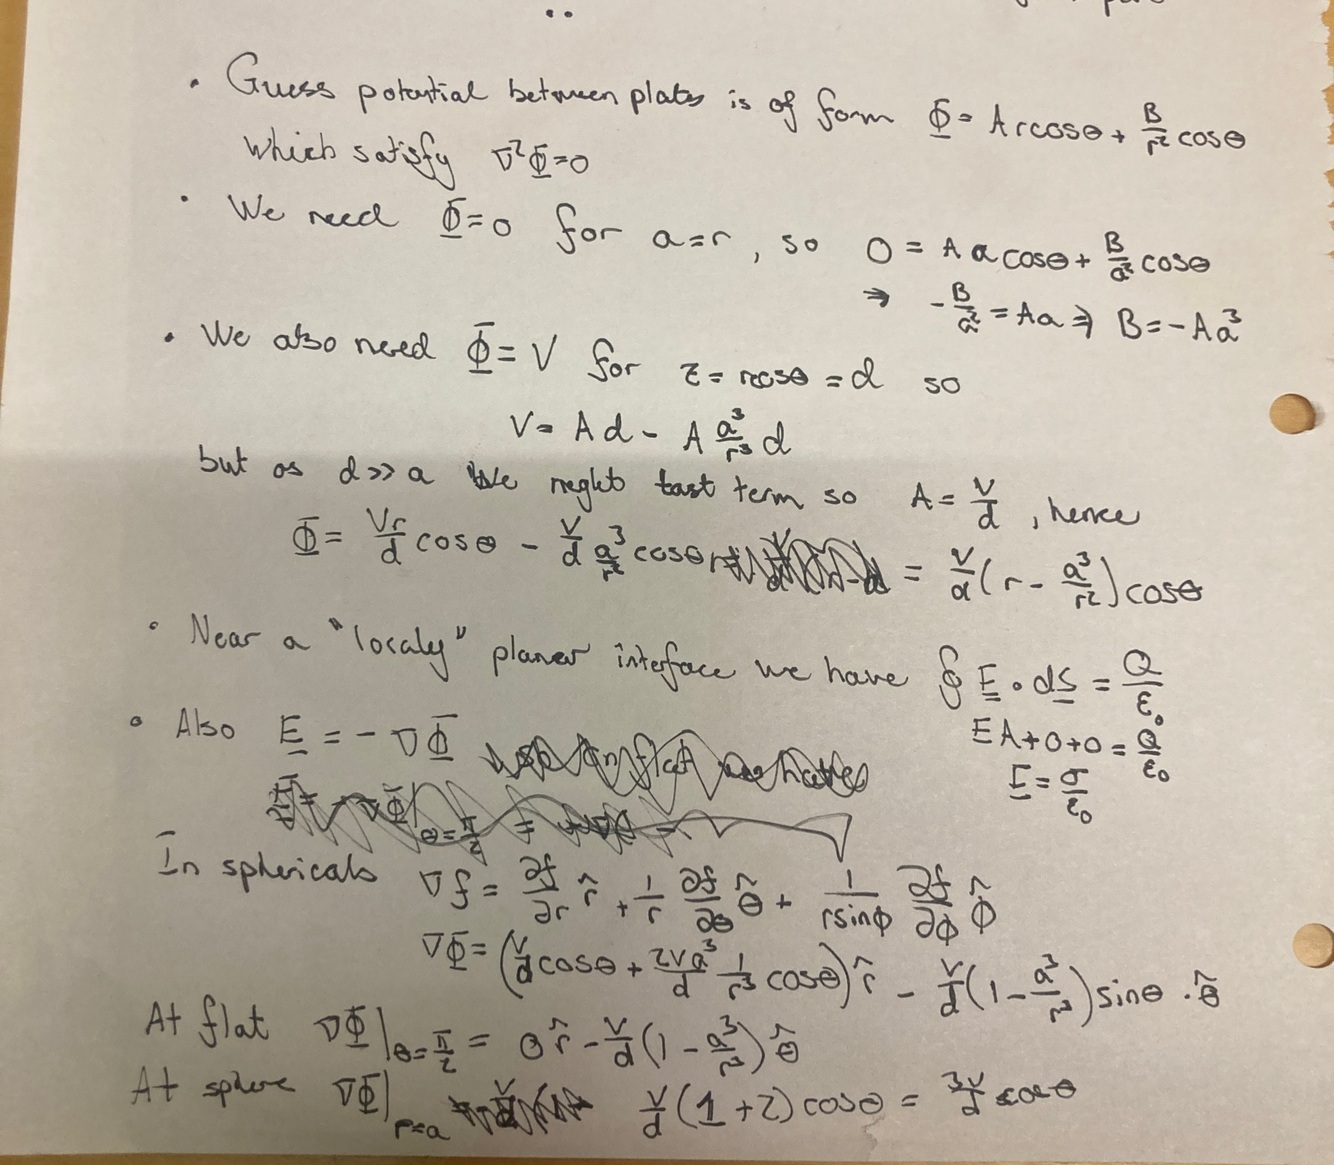 • Guess potential between plates is of form Φ = A r cosθ + B/r² cosθ
which satisfy ∇²Φ=0
• We need Φ=0 for a=r, so 0 = A a cosθ + B/a² cosθ
⇒ -B/a² = Aa ⇒ B = -Aa³
• We also need Φ = V for z = rcosθ = d so
V = Ad - A a³/r³ d
but as d>>a we neglt last term so A = V/d, hence
Φ = Vr/d cosθ - V/d a³/r² cosθ = V/d (r - a³/r²) cosθ
• Near a "localy" planer interface we have ∮ E • dS = Q/ε₀
EA+0+0 = Q/ε₀
• Also E = -∇Φ
E = σ/ε₀
In sphericals ∇f = ∂f/∂r r̂ + 1/r ∂f/∂θ θ̂ + 1/(rsinϕ) ∂f/∂ϕ ϕ̂
∇Φ = (V/d cosθ + 2Va³/d 1/r³ cosθ) r̂ - V/d (1 - a³/r³) sinθ · θ̂
At flat ∇Φ|θ=π/2 = 0 r̂ - V/d (1 - a³/r³) θ̂
At sphere ∇Φ|r=a V/d (1+2) cosθ = 3V/d cosθ